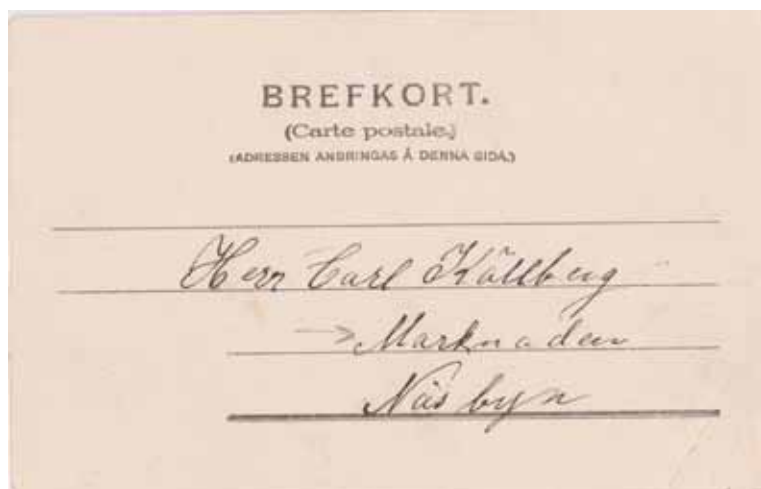 BREFKORT.
(Carte postale.)
(ADRESSEN ANBRINGAS Å DENNA SIDA.)
Herr Carl Källberg
Marknaden
Näsbyn